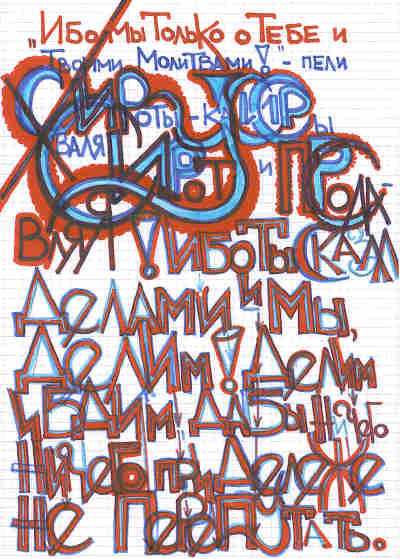 „Ибо мы Только о Тебе и
Твоими Молитвами!" - пели
Сирот и Прода-
Вля! Ибо ты Сказал
Делами и Мы,
Делим! Делим
и Бдим, Дабы Ничего
Ничего при Дележе
Не Перепутать.